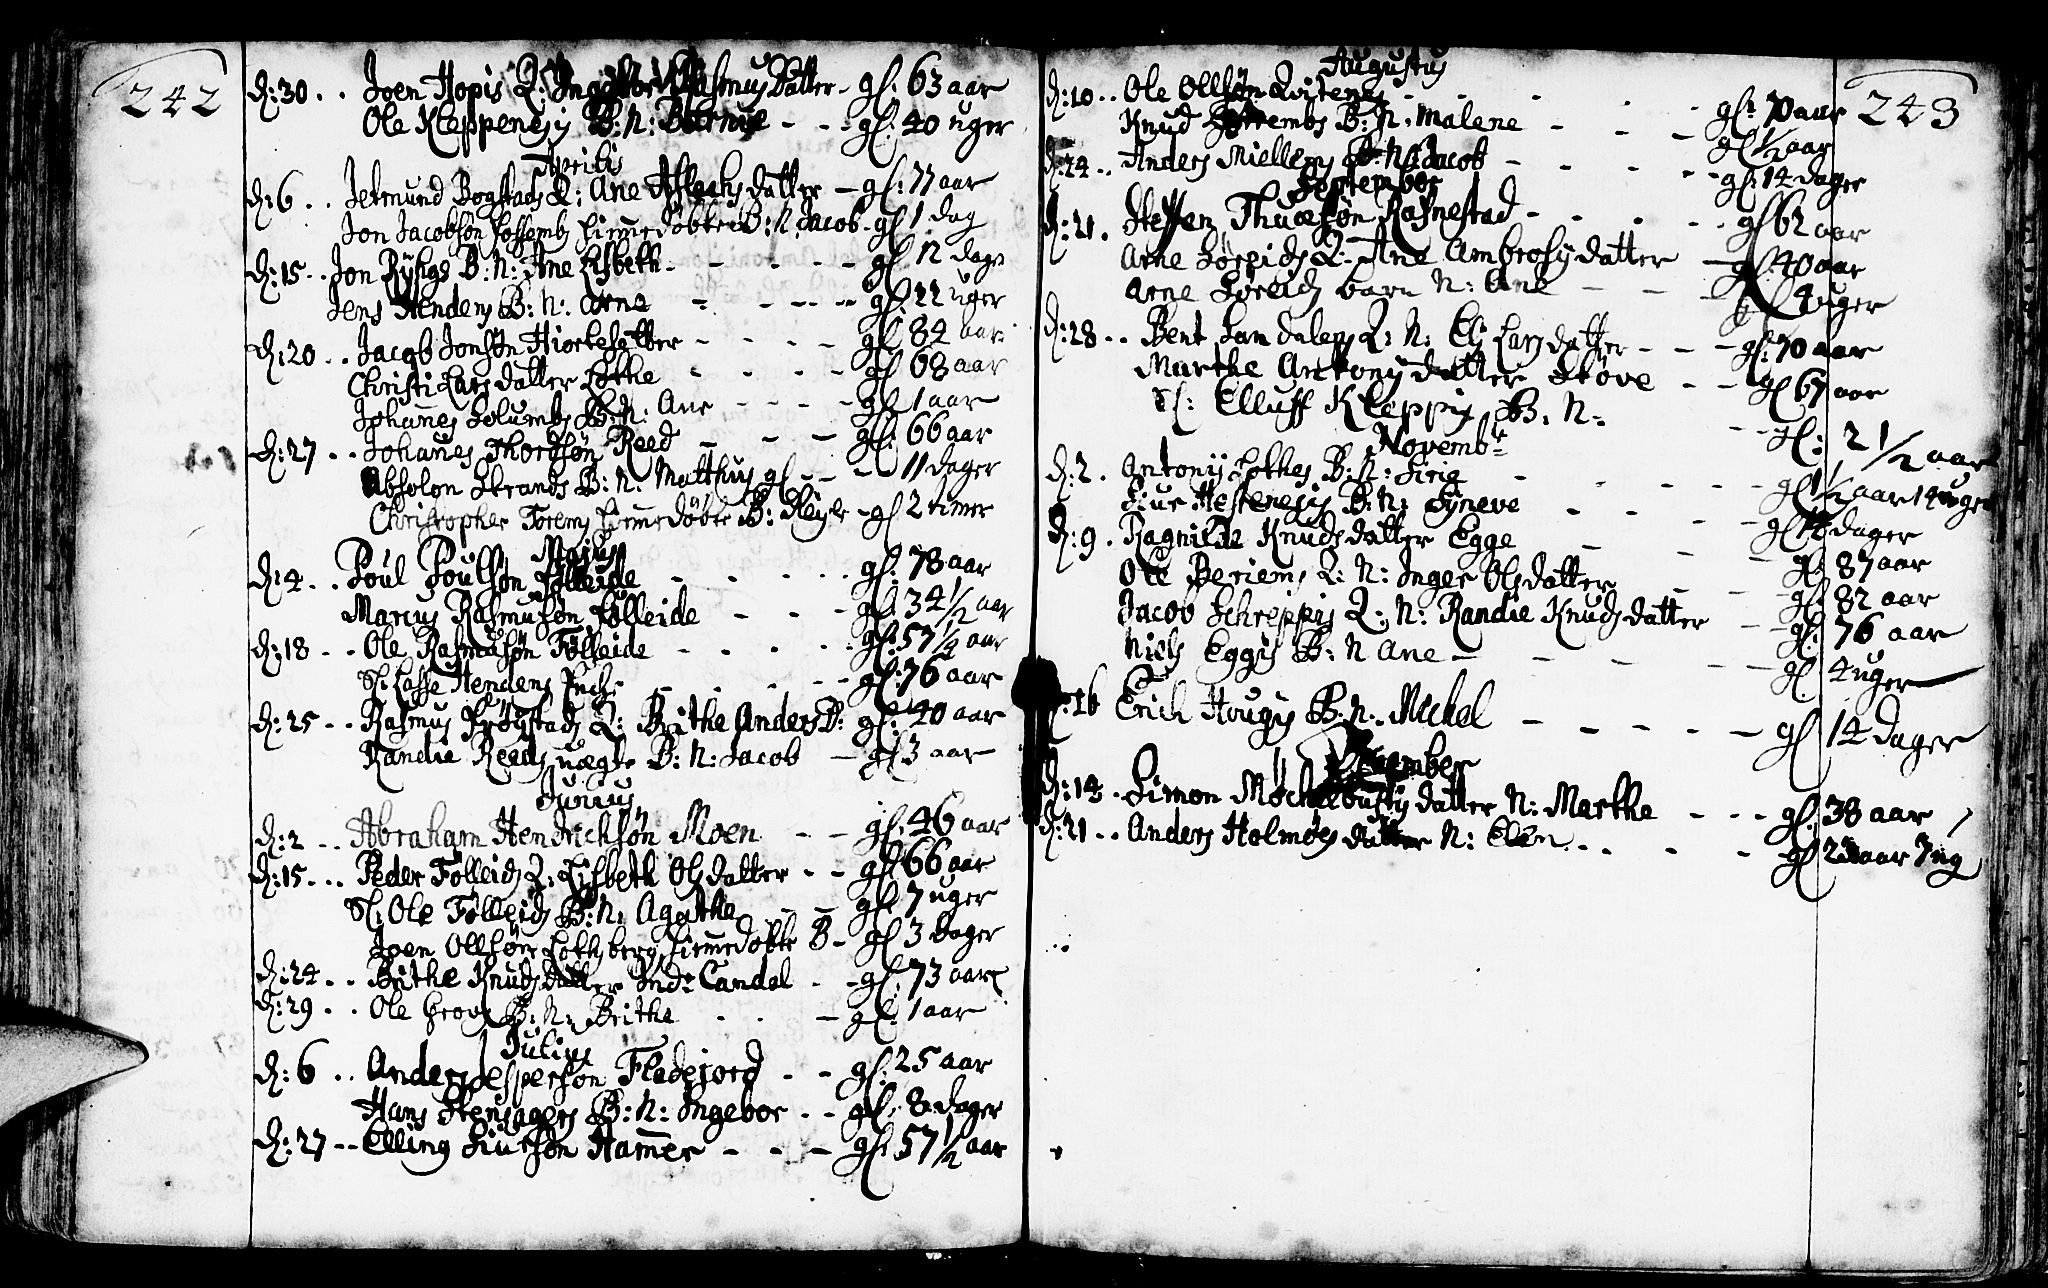 242
D: 30 . . Joen Hopis Q: Ingebor Rasmus Datter - gl: 63 aar
Ole Kleppenesij B: N: - - - gl: 40 uger
Aprilis
D: 6 . . Jetmund Bogstads Q: Ane Aslachs datter - gl: 77 aar
Jon Jacobsøn hiemedøbte B: N. Jacob - gl 1 dag
D: 15 . . Jon Rysligs B: N: Ane Lisbeth - - - - gl 12 dage
Jens Hendens B: N: Arne - - - - gl: 22 uger
D: 20 . . Jacob Jonsøn Hiortesetter - - - - gl 84 aar
Christi Lars datter Lothe - - - - gl 68 aar
Johanes Solumbs B: N: Ane - - - - gl 1 aar
D: 27 . . Johanes Thordsøn Reed - - - gl: 66 aar
Absolon Strands B: N: Matthijs gl - - - 11 dager
Christopher Torems hiemedøbte B: - gl 2 timer
Majus
D: 4 . . Poul Poulsøn Følleide - - - - gl: 78 aar
Marius Rasmusøn Følleide - - - gl: 34 1/2 aar
D: 18 - - Ole Rasmusøn Følleide - - - - gl: 57 1/2 aar
Sl: Lasse Hendens Enche - - - - gl: 76 aar
D: 25 - - Rasmus Frøystads Q: Brithe Anders D: gl: 40 aar
Randie Reeds B: N: Jacob - gl 3 aar
Junius
D: 2 . . Abraham Hendrichsøn Moen - - gl: 46 aar
D: 15 . . . Peder Følleids Q: Lisbeth Ols datter - - gl 66 aar
Sl: Ole Følleids B: N: Agathe - - gl 7 uger
Joen Ollsøn hiemedøbte B - gl 3 dager
D: 24 . . Brithe Knuds datter Ind: Candal . - gl: 73 aar
D: 29 . . Ole Grovs B: N: Brithe . . - gl: 1 aar
Julius
D: 6 . . Anders Jespersøn Fladejord - - gl: 25 aar
Hans Stensagers B: N: Ingebor - - gl: 8 dager
D: 27 - - Elling Siursøn Hamer - - - gl: 57 1/2 aar
243
Augustus
D: 10 . . Ole Ollsøn Qvitenes - - - - gl: 70 aar
Knud B: N. Malene - - - gl 1/2 aar
D: 24 . . Anders Miellems B: N: Jacob - - - gl: 14 dager
September
D: 21 . Steffen Thuesøn Rafnestad - - - - gl 62 aar
Arne Sørpids Q: Ane Ambrosij datter - gl: 40 aar
Arne barn N: Ane - - - gl 4 uger
D: 28 . . Bent Sandalens Q: N: Eli Lars datter - - - gl: 70 aar
Marthe Antonij datter Støve - - gl 67 aar
Sl: Elluff Kleppis B: N: - - gl: 2 1/2 aar
Novembr
D: 2 . Antonij Lothes B: N: Sirig - - - - gl 1 1/2 aar 14 uger
Siur Hestenesis B: N: Syneve - - - - gl 14 dager
D: 9 . Ragnilde Knuds datter Egge - - - gl: 87 aar
Ole Beriems Q: N: Inger Ols datter - - - gl: 82 aar
Jacob Schreppis Q: N: Randie Knuds datter - - gl: 76 aar
Niels Eggis B: N Ane - - - - gl 4 uger
D: 16 Erich Hougis B: N: Michel - - - - - gl 14 dager
December
D: 14 . Simon datter N: Marthe - - - gl: 38 aar
D: 21 . . Anders Holmøes datter N: Ellen . . . - - gl 2 aar 7 ug